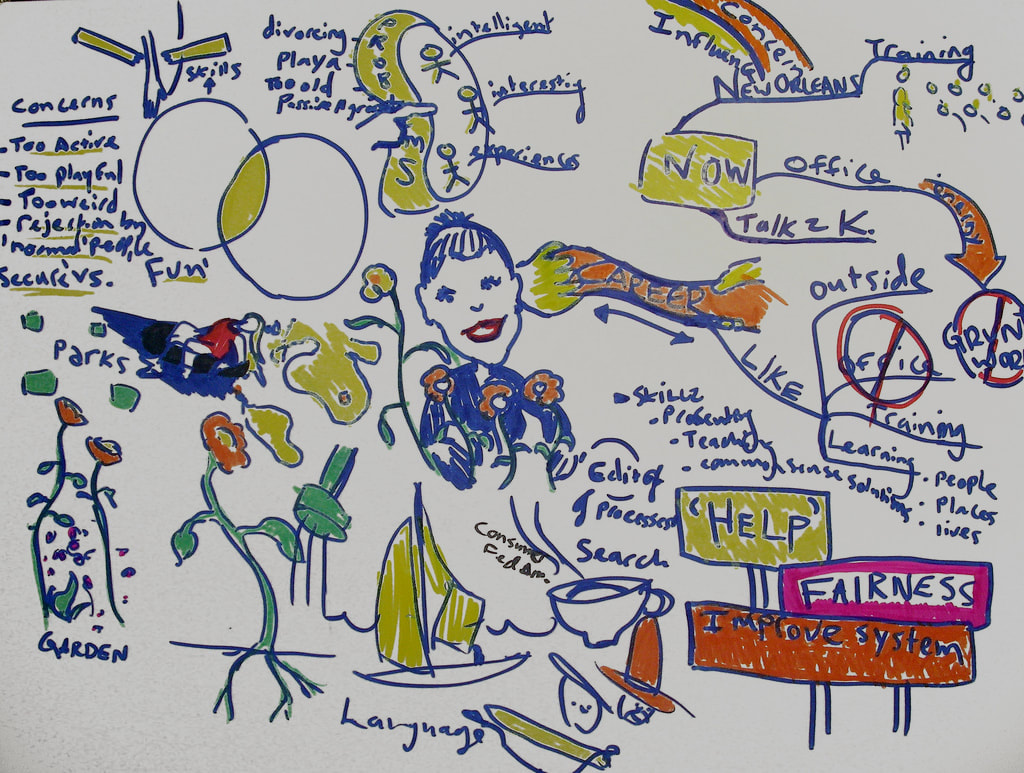 Concerns
- Too Active
- Too playful
- Too weird
- rejection by
'normal' people
secure vs.
skills
Fun
divorcing
playa
Too old
PROB
EMS
intelligent
interesting
experiences
Concern
Influence
NEW ORLEANS
Training
NOW
OFFICE
Talk 2 K.
energy
GRUNT
WORK
CAREER
LIKE
outside
office
Training
Learning
· people
· places
· lives
skillz
· Presenting
· Teaching
· common sense solutions
Editor
of processes
Search
Parks
GARDEN
Consumer
'HELP'
FAIRNESS
Improve system
Language